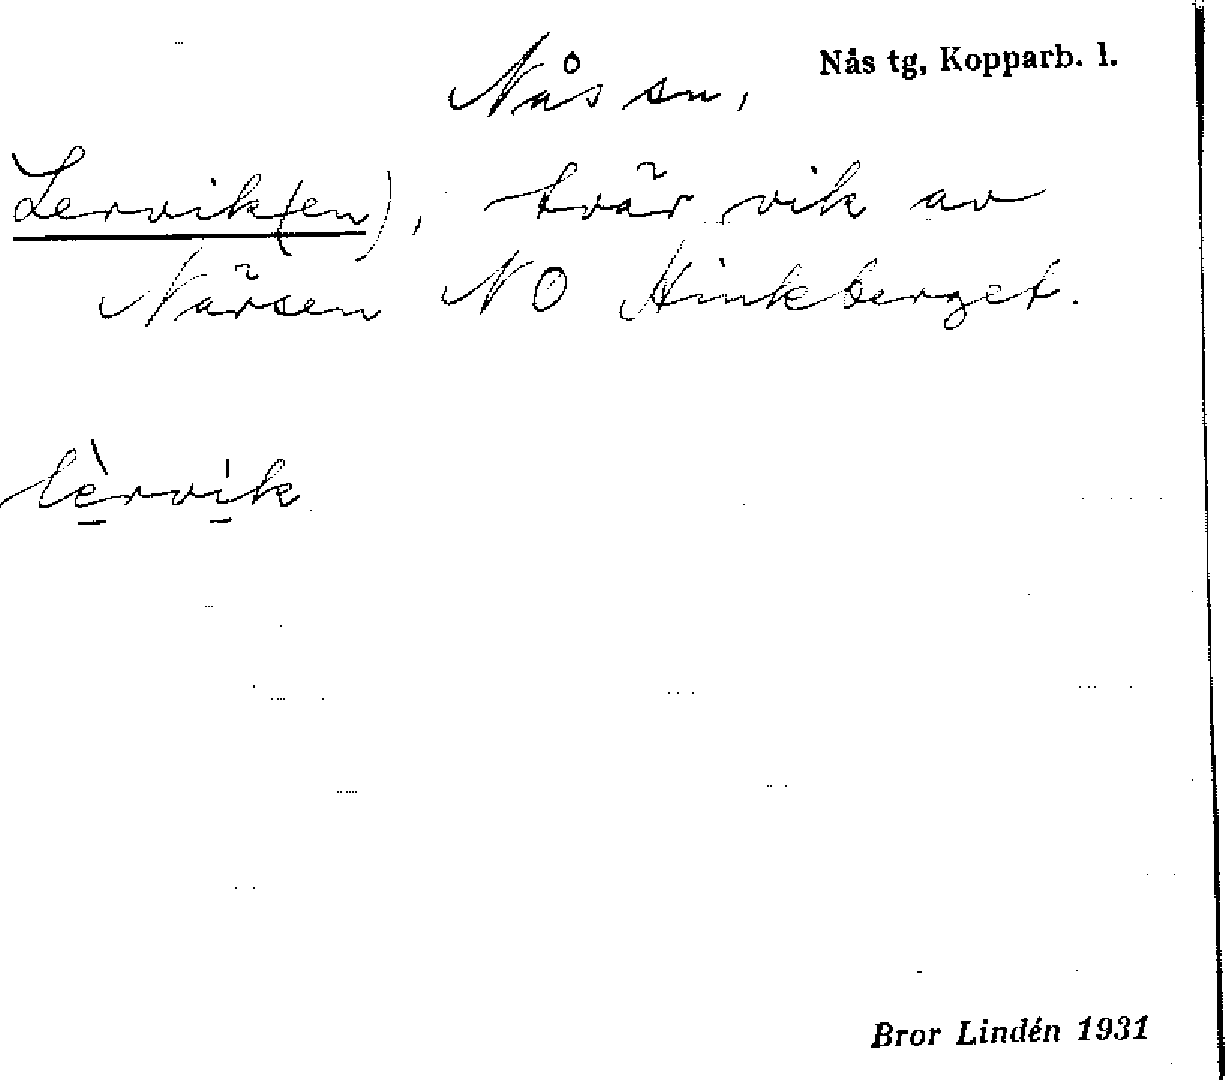 Nås sn, Nås tg, Kopparb. l.
Lervik(en), tvär vik av
Närsen NO Hinkberget.
lèrvik
Bror Lindén 1931